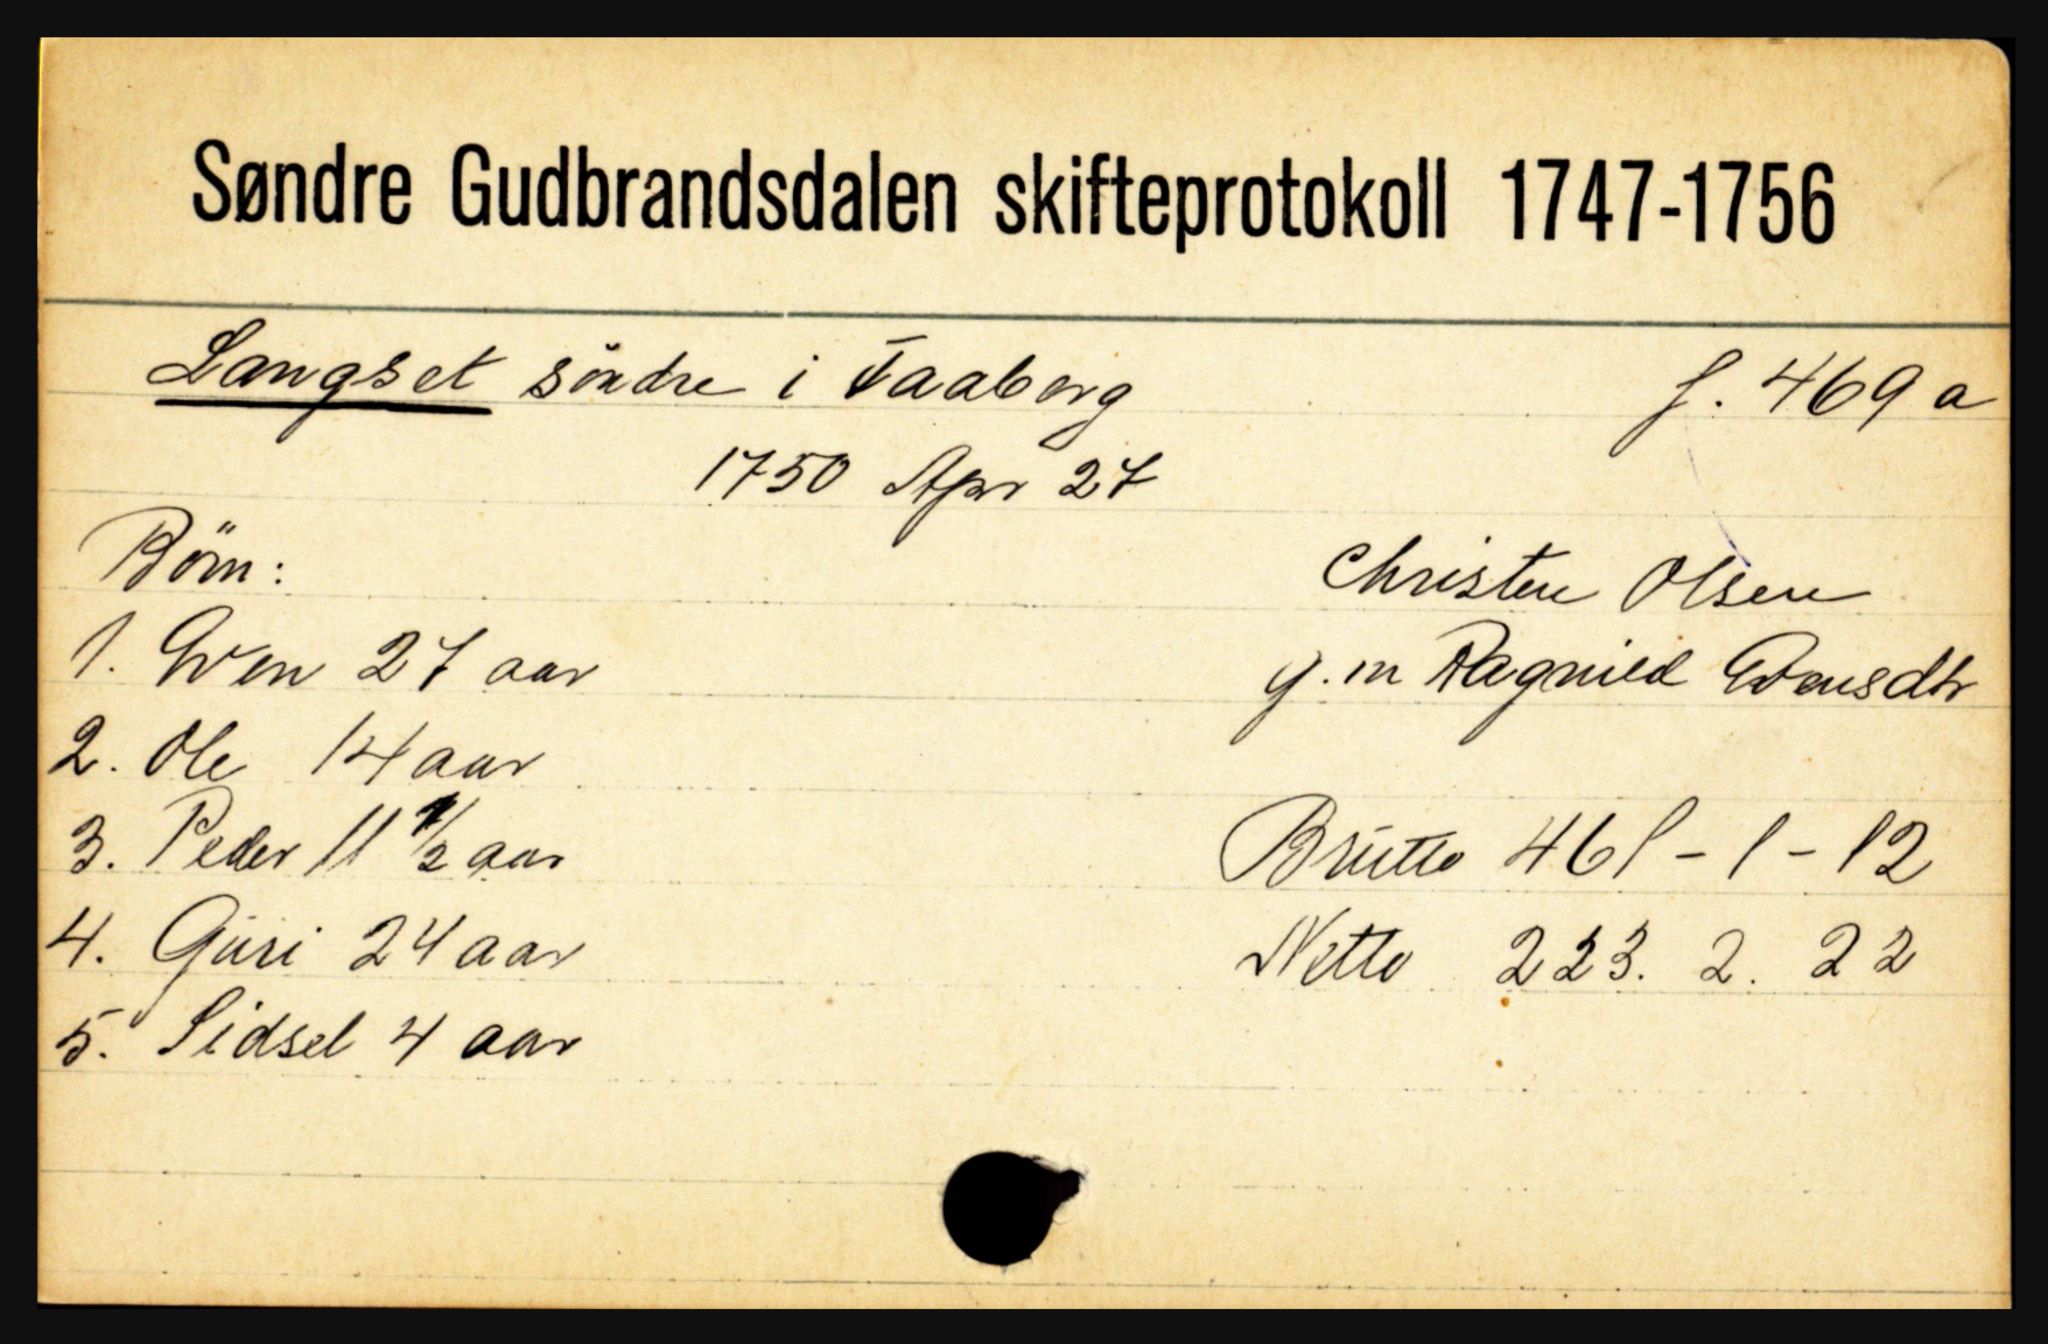 Søndre Gudbrandsdalen skifteprotokoll 1747-1756
Langset söndre i Faaberg f. 469 a
1750 Apr 27
Börn:
Christen Olsen
1. Even 27 aar
g. m Ragnild Evensdtr
2. Ole 14 aar
3. Peder 11 1/2 aar
Brutto 461 - 1 - 12
4. Guri 24 aar
Netto 223. 2. 22
5. Sidsel 4 aar